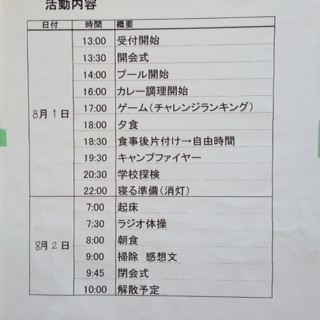 活動内容
日付 時間 概要
8月1日
13:00 受付開始
13:30 開会式
14:00 プール開始
16:00 カレー調理開始
17:00 ゲーム(チャレンジランキング)
18:00 夕食
18:30 食事後片付け→自由時間
19:30 キャンプファイヤー
20:30 学校探検
22:00 寝る準備(消灯)
8月2日
7:00 起床
7:30 ラジオ体操
8:00 朝食
9:00 掃除 感想文
9:45 閉会式
10:00 解散予定